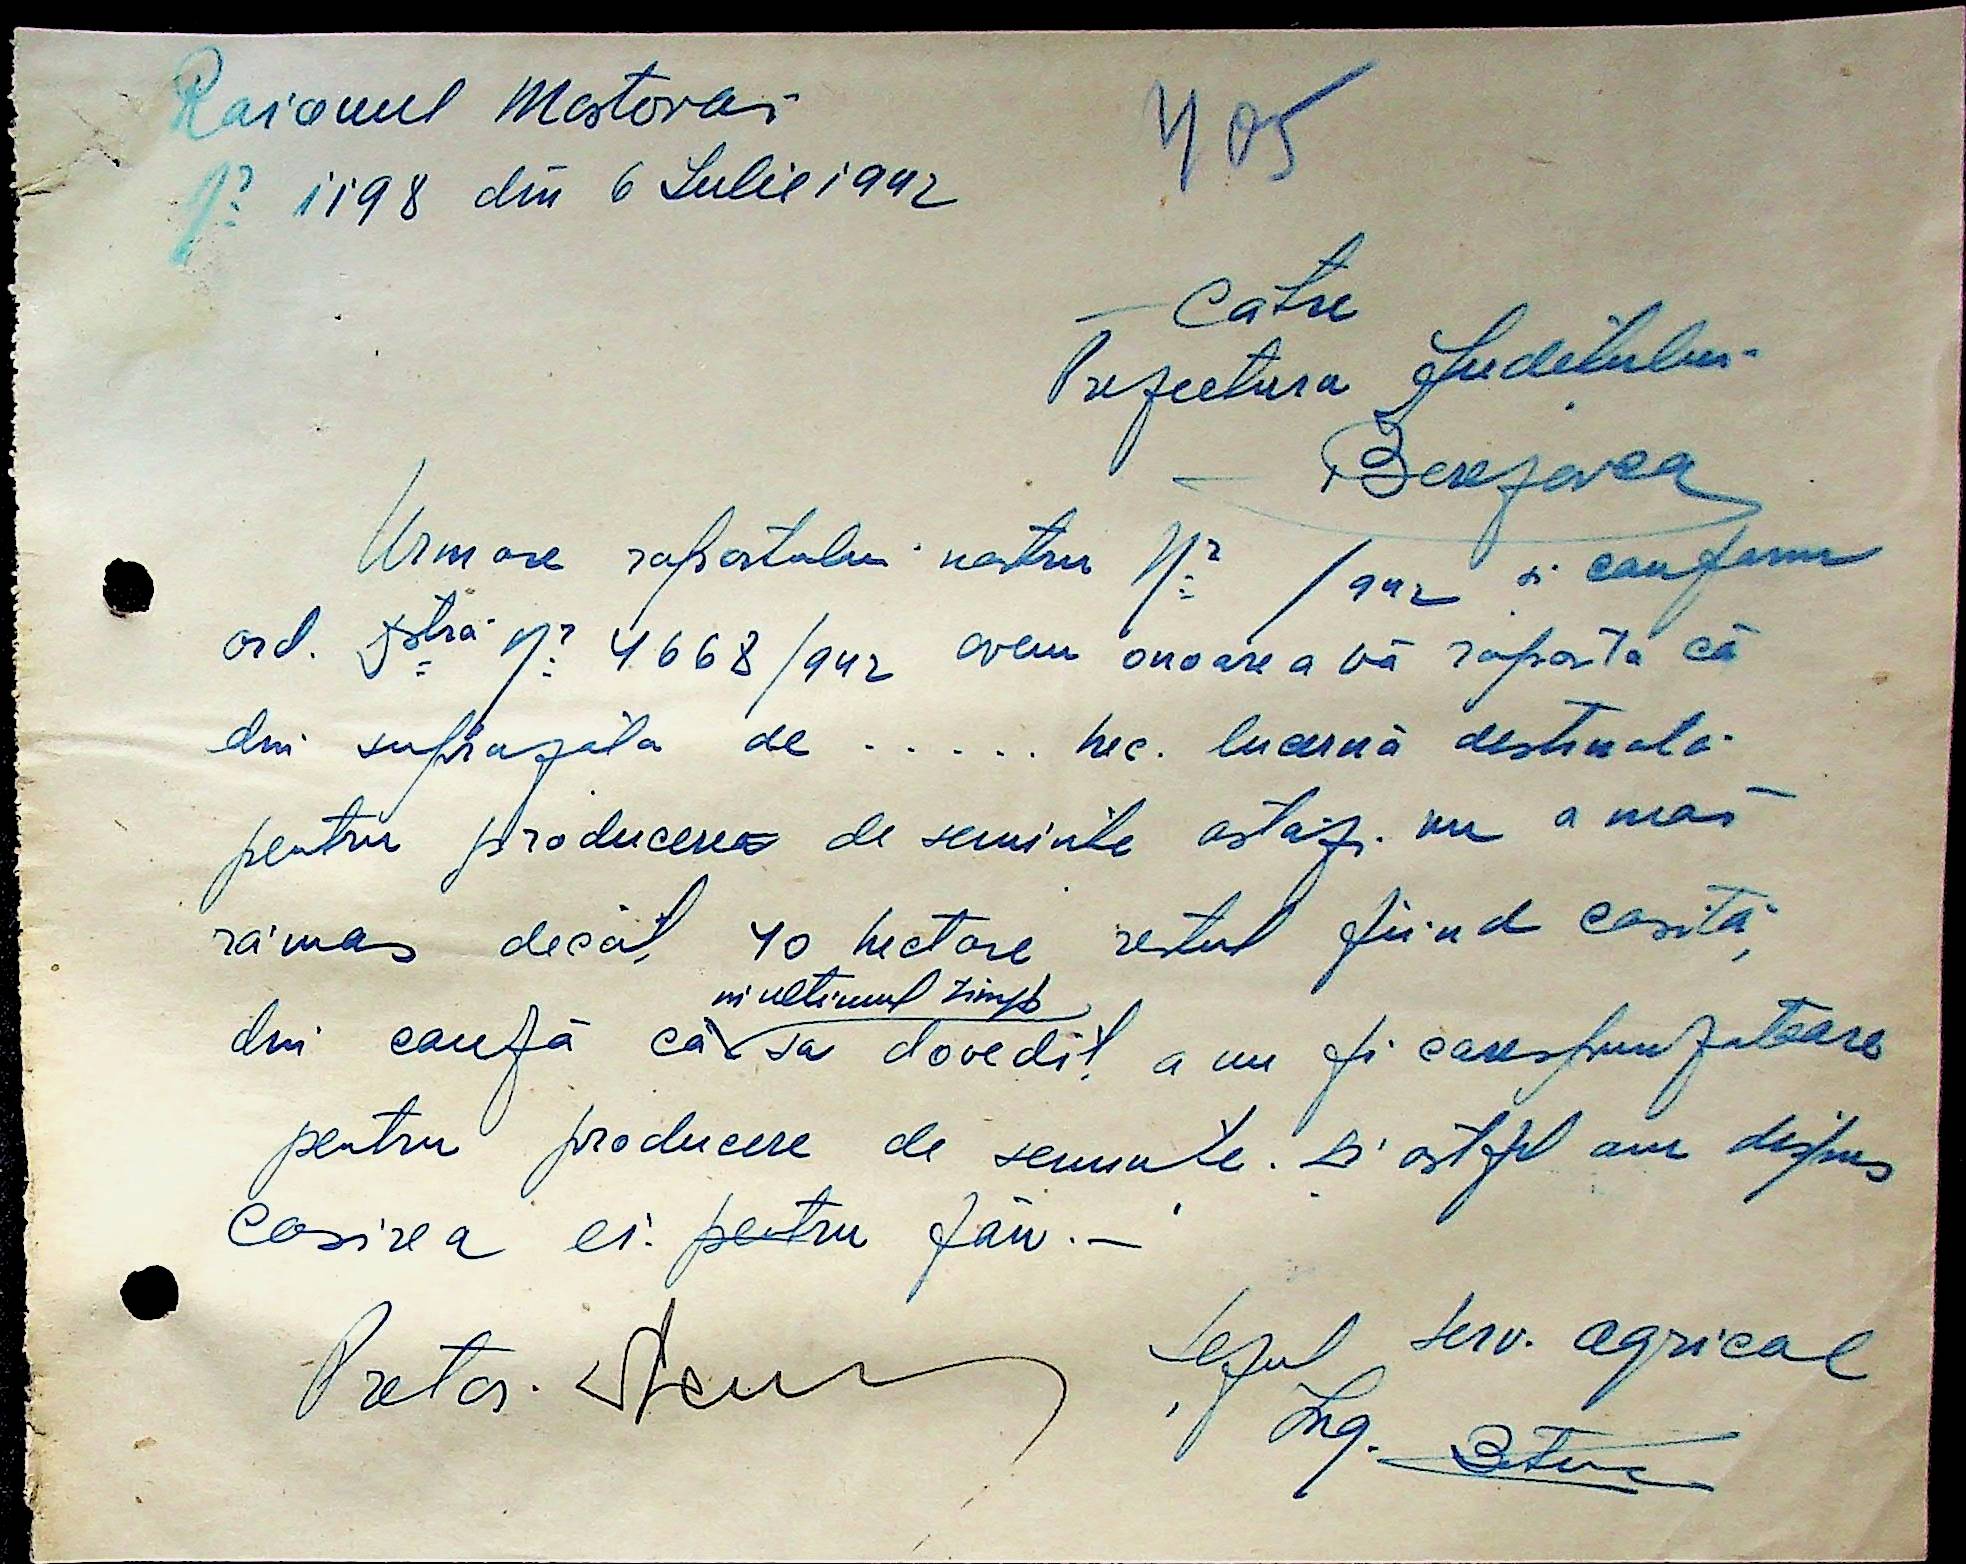 Raionul Mostovai
405
Nº 1198 din 6 Iulie 1942
Catre
Prefectura Judetului
Berezovca
Urmare raportului nostru Nº /942 si conform
ord. Dstră Nº 4668/942 avem onoarea vă raporta că
din suprazata de ..... hec. lucernă destinată
pentru producerea de seminte astăzi nu a mai
rămas decât 40 hectare restul fiind cosită,
in ultimul timp
din cauză că sa dovedit a nu fi corespunzatoare
pentru producere de seminte. si astfel am dispus
cosirea ei pentru fân.—
Pretor.
Seful serv. agricol
Ing.